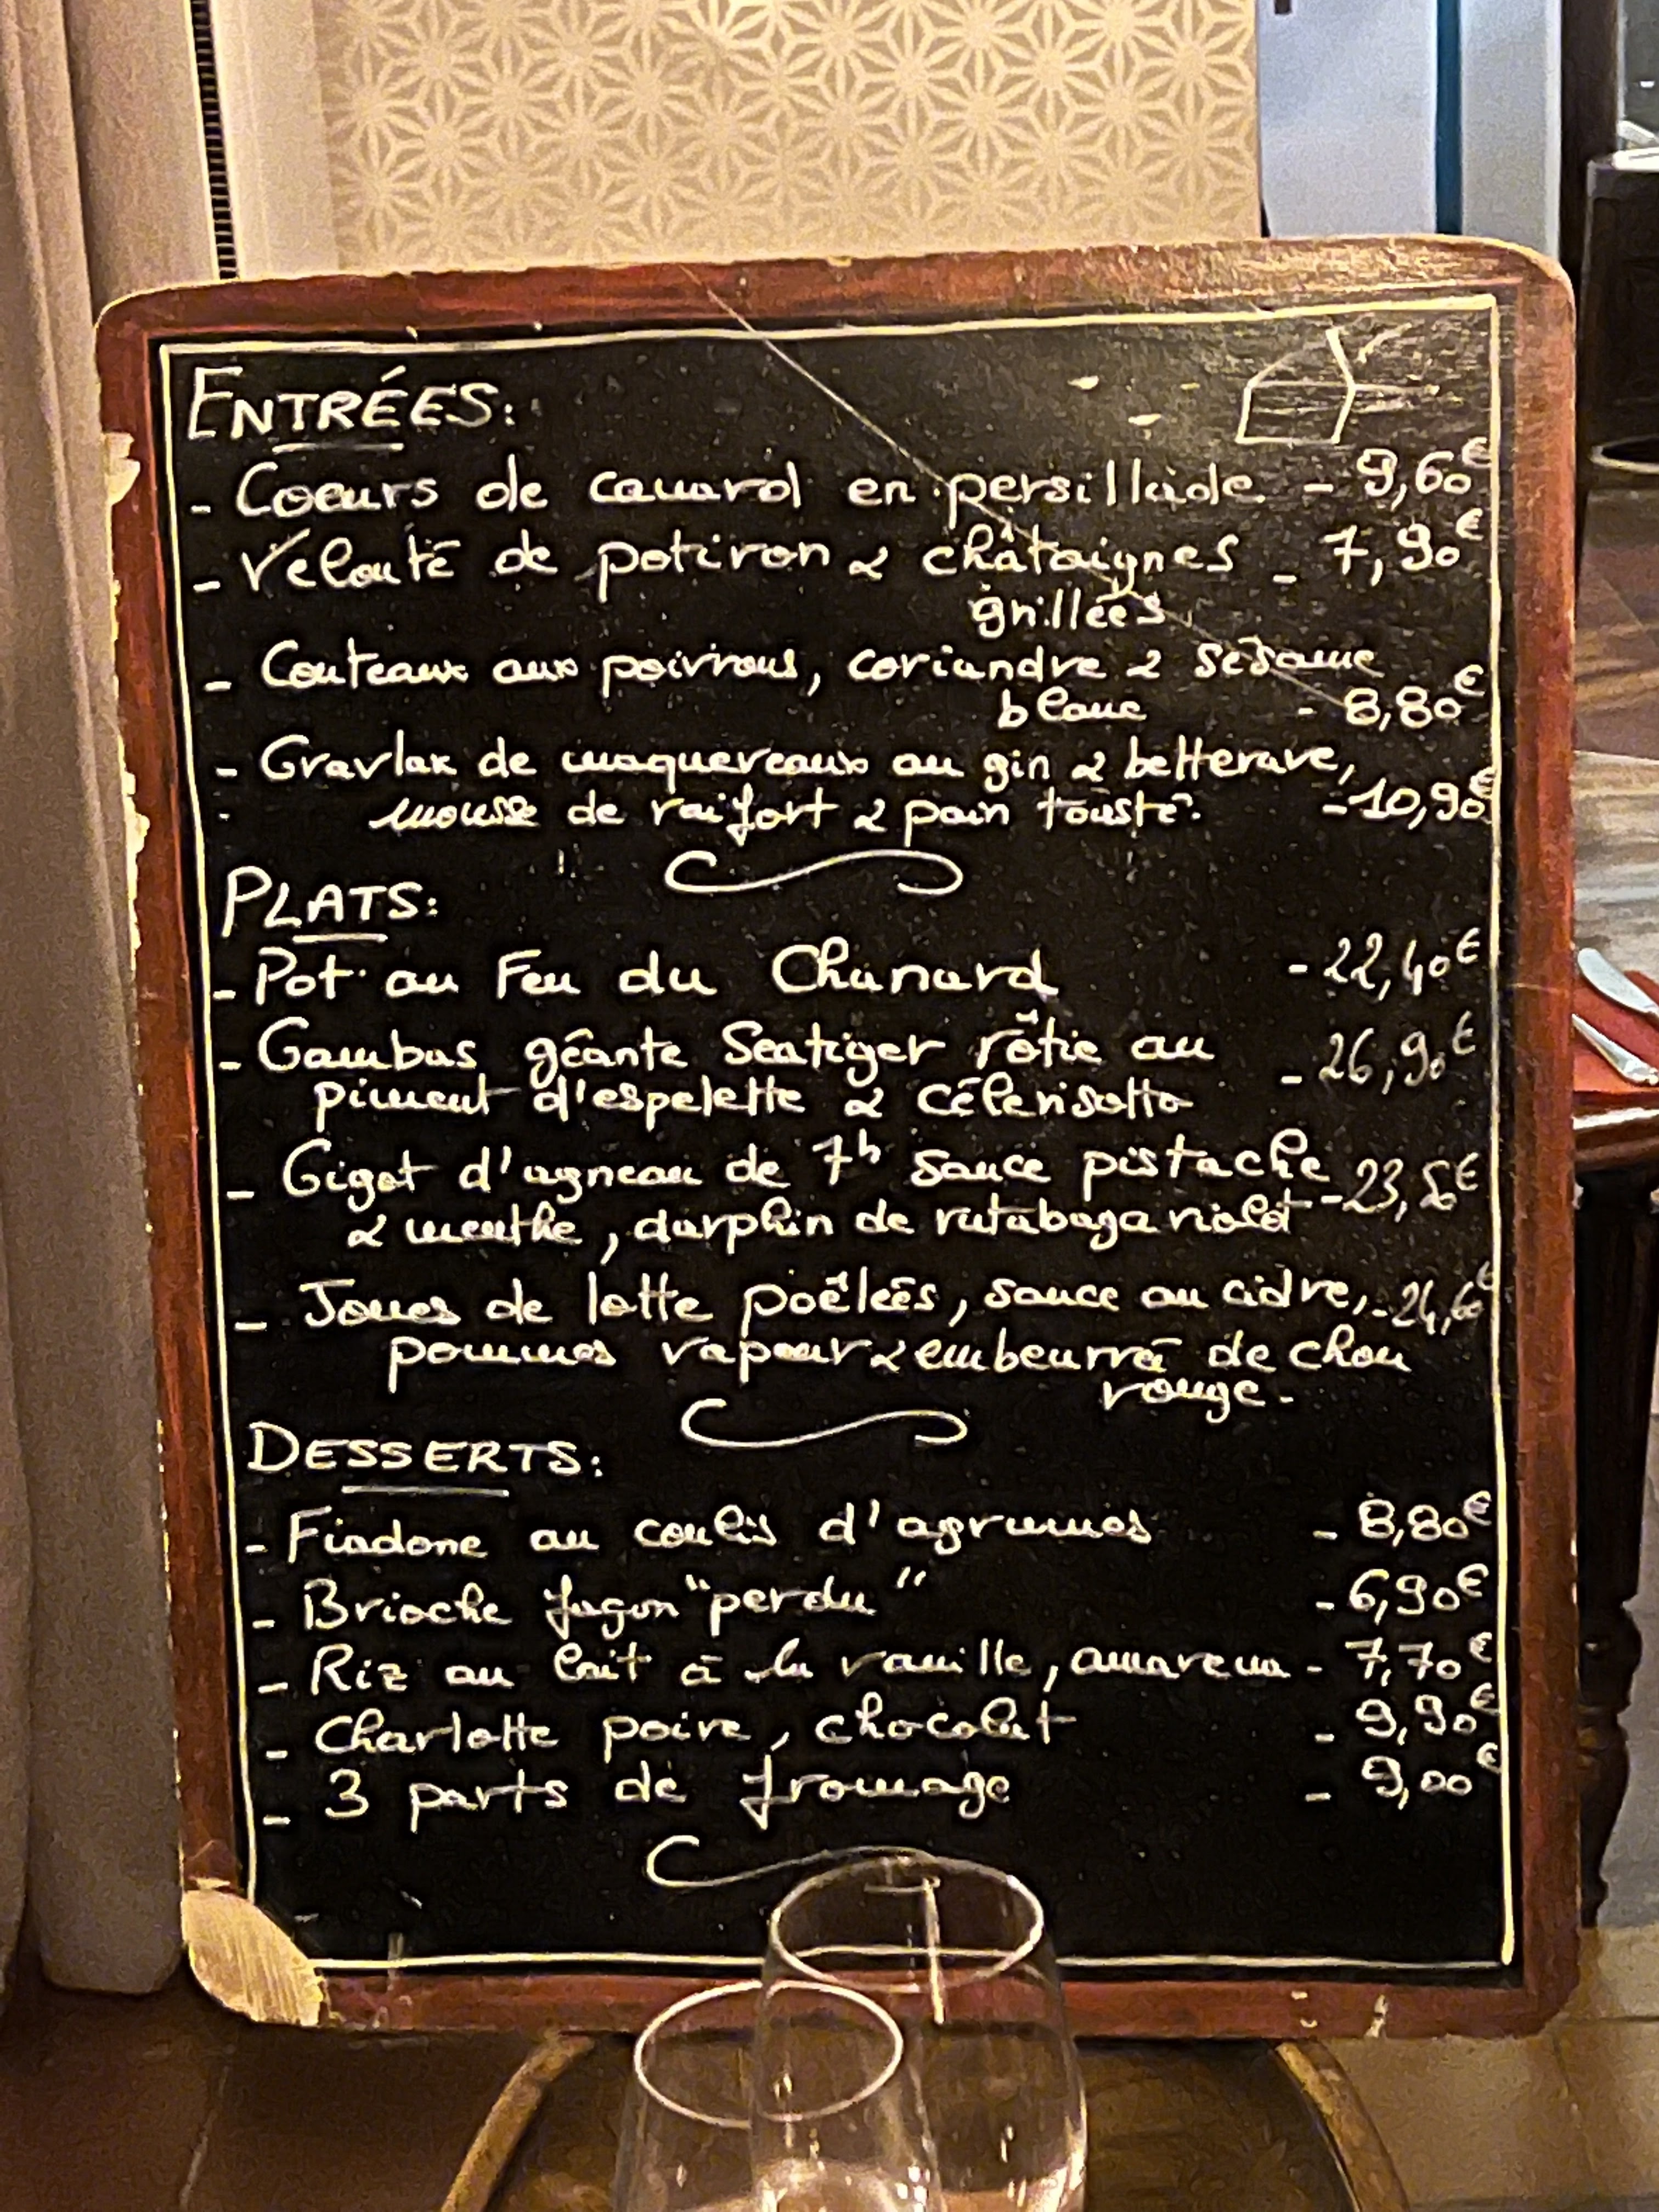 ENTRÉES:
- Coeurs de canard en persillade - 9,60€
- Velouté de potiron & châtaignes - 7,90€
grillées
- Couteaux aux poivrons, coriandre & sésame
blanc - 8,80€
- Gravlax de maquereaux au gin & betterave,
mousse de raifort & pain toasté. - 10,90€
PLATS:
- Pot au Feu du Chanard - 22,40€
- Gambas géante Seatiger rôtie au - 26,90€
piment d'espelette & célerisotto
- Gigot d'agneau de 7h sauce pistache - 23,50€
& menthe, darphin de rutabaga violet
- Joues de lotte poêlées, sauce au cidre, - 24,60€
pommes vapeur & embeurré de chou
rouge.
DESSERTS:
- Fiadone au coulis d'agrumes - 8,80€
- Brioche façon "perdu" - 6,90€
- Riz au lait à la vanille, amarena - 7,70€
- Charlotte poire, chocolat - 9,90€
- 3 parts de fromage - 9,00€